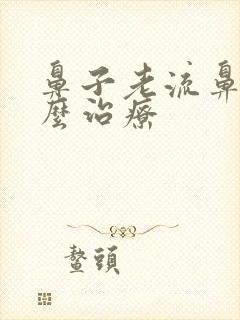 鼻子老流鼻
麼治療
鳌頭